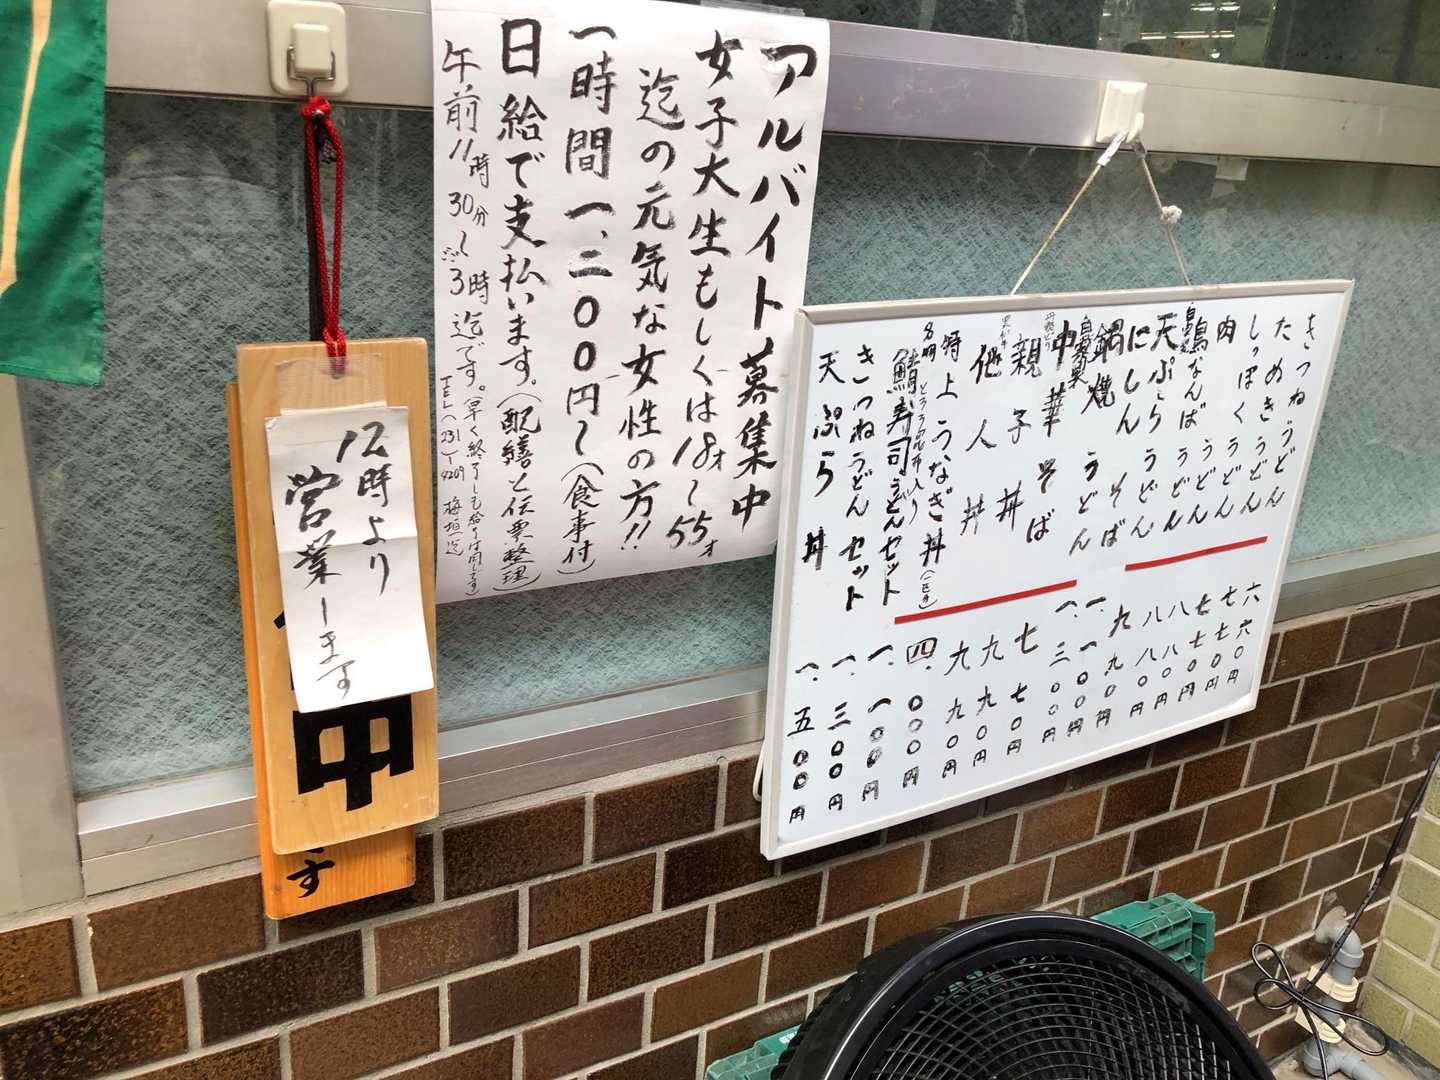 アルバイト募集中
女子大生もしくは18才〜55才
迄の元気な女性の方!!
一時間一、二〇〇円〜(食事付)
日給で支払います。(配繕と伝票整理)
午前11時30分〜3時迄です。(早く終了しても給与は同じです)
TEL(231)-9209 梅垣迄
12時より
営業します
中
す
きつねうどん 六六〇円
たぬきうどん 七七〇円
しっぽくうどん 七七〇円
肉うどん 八八〇円
鳥なんばうどん 八八〇円
天ぷらうどん 九九〇円
にしんそば 一、一〇〇円
鍋焼うどん 一、三〇〇円
中華そば 七七〇円
親子丼 九九〇円
他人丼 九九〇円
上うなぎ丼 四、〇〇〇円
鯖寿司うどんセット 一、一〇〇円
きつねうどんセット 一、三〇〇円
天ぷら丼 一、五〇〇円